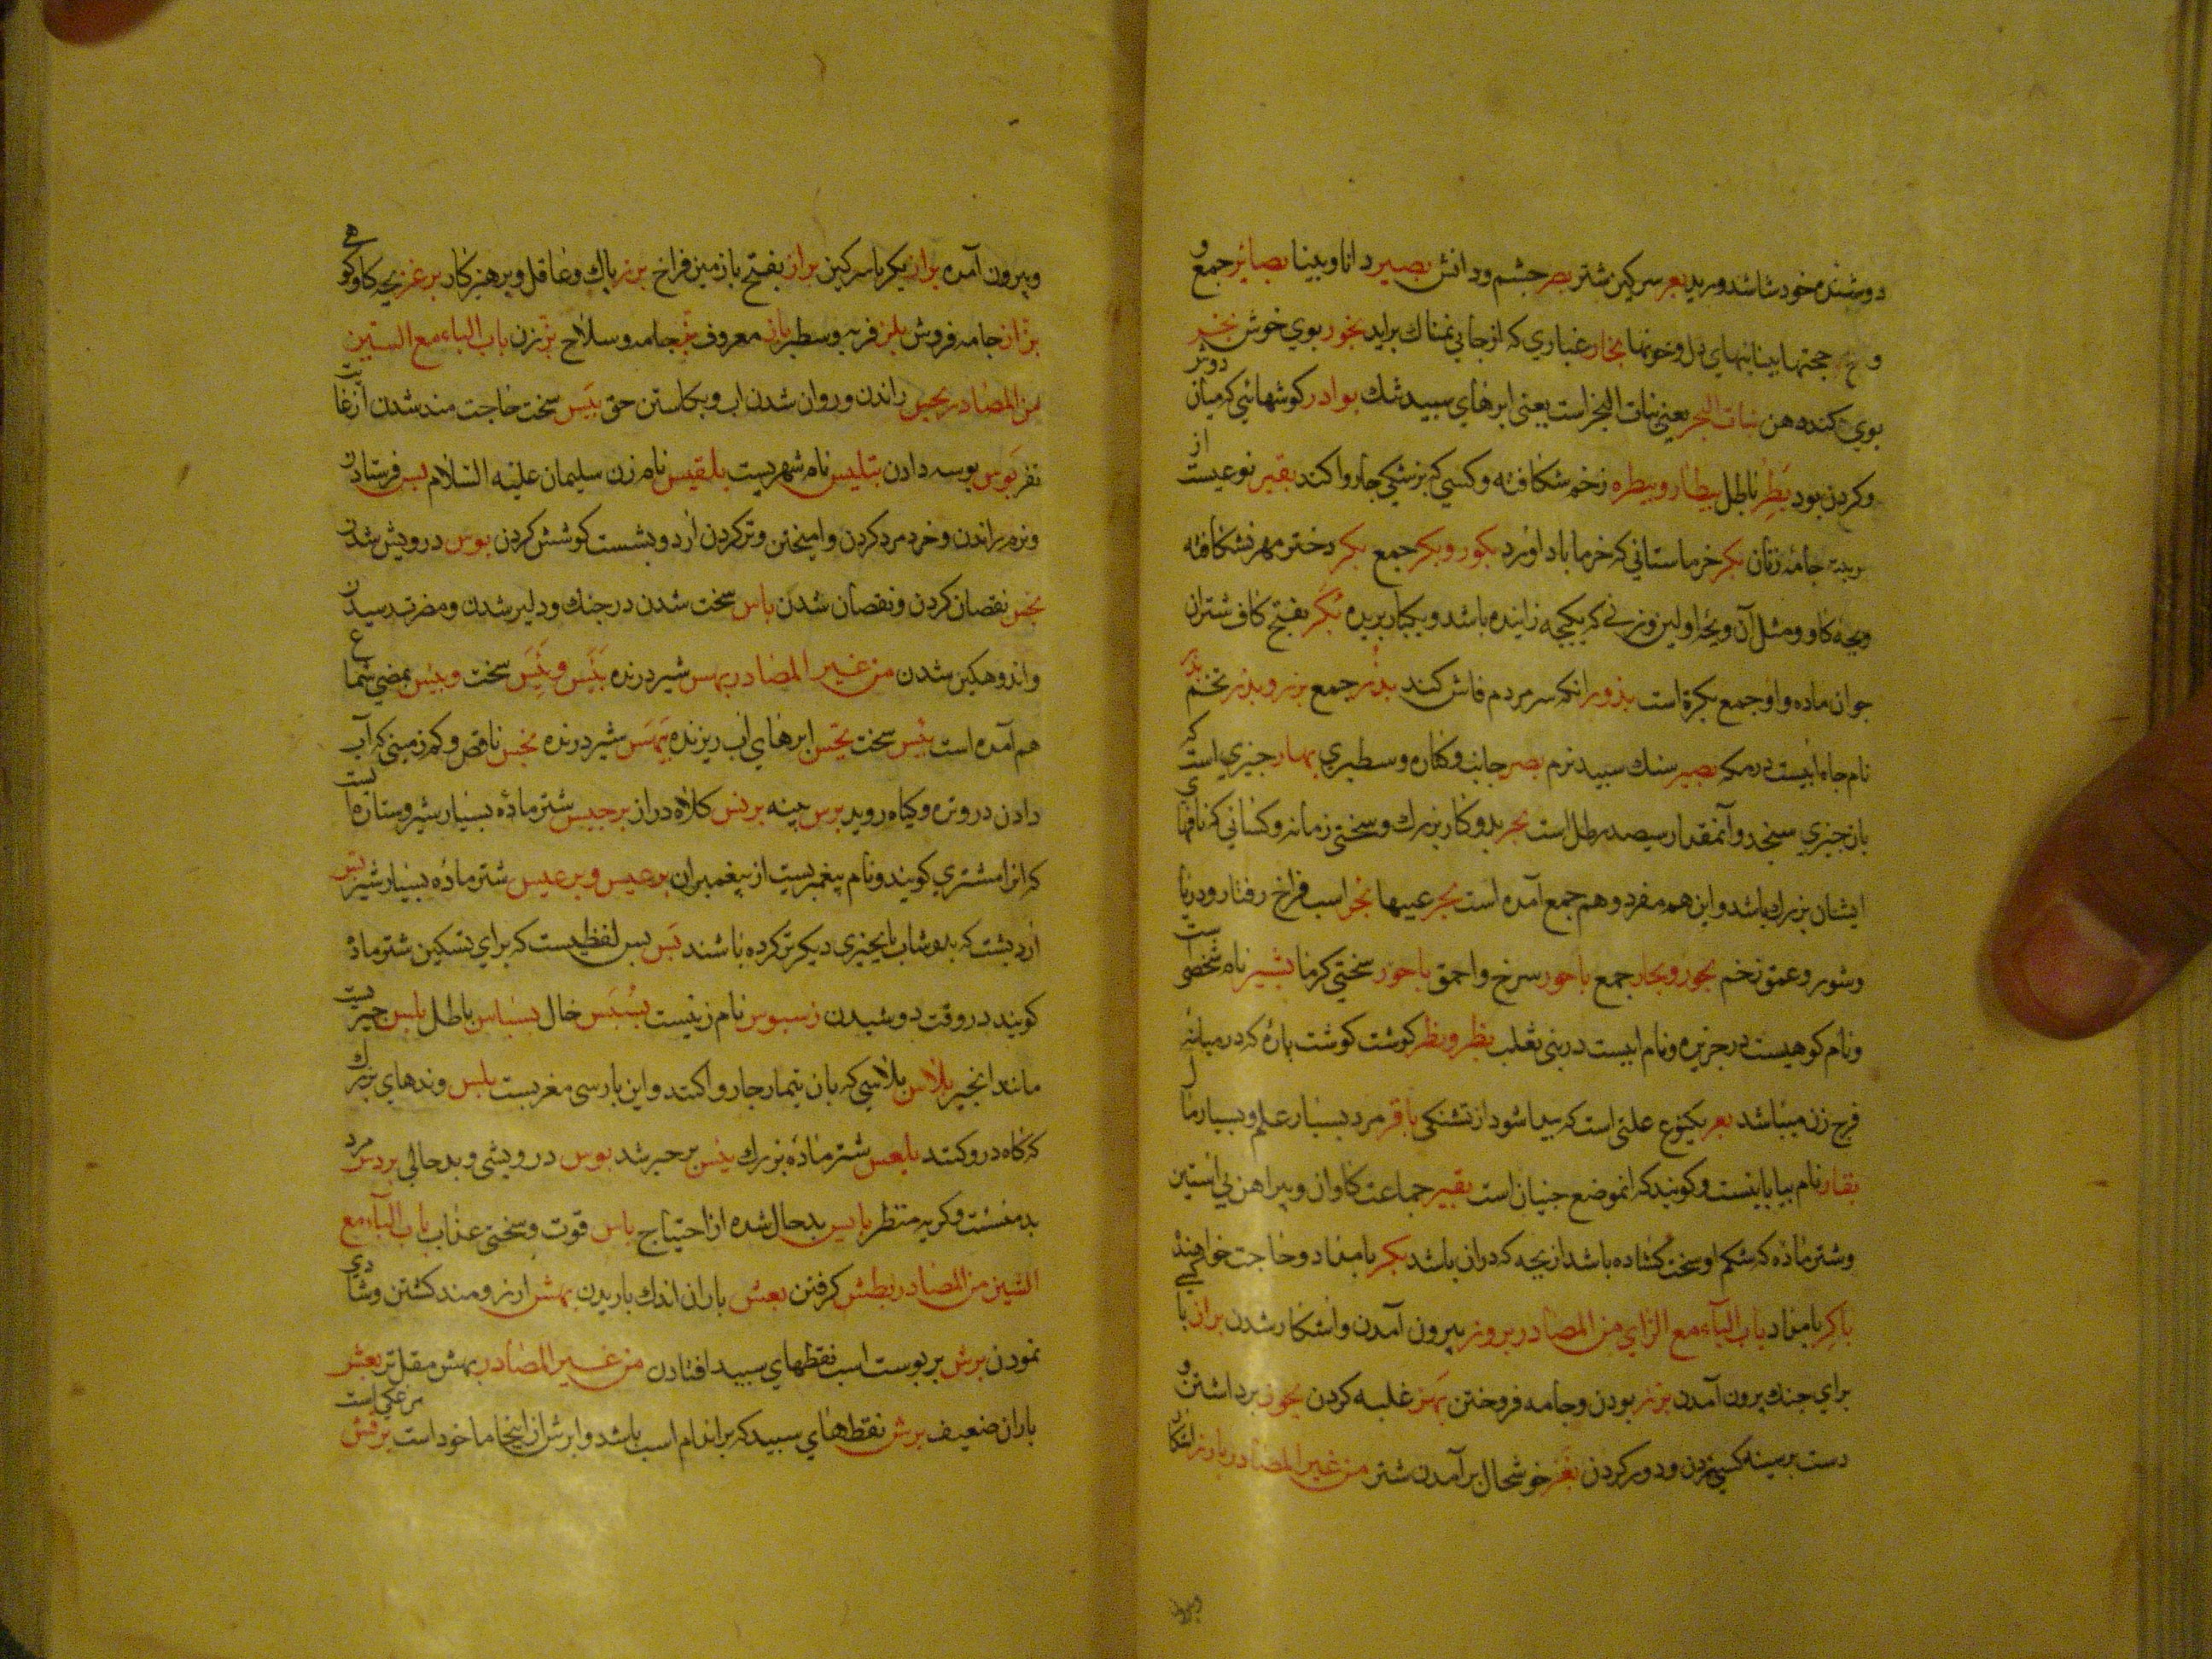 دوشنده خود شاشد و رید بعر سرکین شتر بصر چشم و دانش بصیر دانا و بینا بصایر جمع و
حجتها بیناییهای دل و خونها بخار غباری که از جایی نمناک براید بخور بوی خوش بخر
بوی کنده دهن بنات البخر یعنی بنات البخر است یعنی ابرهای سبید تنک بوادر کوشهائی که میان دوش
و کردن بود بطر باطل بیطار و بیطره زخم شکافته و کسی که بزشکی جاروا کند بقیر نوعیست از
جامهٔ زنان بکر خرماستانی که خرما باد اورد بکور و بکر جمع بکر دختر مهر نشکافته
و بچه کاو و مثل آن و بچهٔ اولین و زنی که یکبچه زاینده باشد و یکبار بریده بکر بفتح کاف شتران
جوان ماده و او جمع بکرة است بذور انکه سر مردم فاش کند بذر جمع بزر و بذر تخم بدر
نام جاه ابیست در مکه بصیر سنک سبید نرم بصر جانب و کناره و سطبری بهار جیزی است که
بان جیزی سنجد و آنمقدار سیصد رطل است بجر بد و کار بزرک و سختی زمانه و کسانی که نافهای
ایشان بزرک باشد و این هم مفرد و هم جمع آمده است بجر عیبها بحر اسب فراخ رفتار و دریا
و شور و عمق زخم بحور و بحار جمع باحور سرخ و احمق باحور سختی کرما بشیر نام شخصی است
و نام کوهیست در جزیره و نام ابیست در بنی تغلب بظر و بظر کوشت کوشت پارهٔ که در میانهٔ
فرج زن میباشد بعر یکنوع علتی است که بیدا شود از تشنکی باقر مرد بسیار علم و بسیار مال
بقار نام بیابانیست و کویند که انموضع جنیان است بقیر جماعت کاوان و پیراهن بی استین
و شتر مادهٔ که شکم او سخت کشاده باشد از بچه که دران باشد بکر بامداد و حاجت خواهنده
باکر بامداد باب الباء مع الزای من المصادر بروز بیرون آمدن و اشکار شدن براز با کسی
برای جنک برون آمدن بز بودن و جامه فروختن بهز غلبه کردن بحوز برداشتن و
دست بر سینه کسی زدن و دور کردن بغز خوشحال بر آمدن شتر من غیر المصادر بارز اشکار
و بیرون آمده براز بکر با سرکین براز بفتح با زمین فراخ برز باک و عاقل و برهیزکار برغز بچه کاو کوهی
بزاز جامه فروش بلز فربه و سطبر باز معروف بز جامه و سلاح بز زن باب الباء مع السین
من المصادر بجس راندن و روان شدن اب و بکاستن حق بئس سخت حاجت مند شدن
بوس بوسه دادن بتلیس نام شهریست بلقیس نام زن سلیمان علیه السلام بس فرستادن
و نرم راندن و خرد مرد کردن و امیختن و تر کردن ارد و بشست کوشش کردن بوس درویش شدن
بخس نقصان کردن و نقصان شدن باس سخت شدن در جنک و دلیر شدن و مضرت رسیدن
و اندوهکین شدن من غیر المصادر بیهس شیر درنده بئیس و بئیس سخت و بیس بمضی شجاع
هم آمده است بئس سخت بجس ابرهای اب ریزنده بیهس شیر درنده بخس ناقص و کم زمینی که آب
دادن درو تره و کیاه روید برس پنبه برنس کلاه دراز برجیس شتر مادهٔ بسیار شیر و ستاره ایست
که انرا مشتری کویند و نام پیغمبریست از پیغمبران برعیس و برعیس شتر مادهٔ بسیار شیر بس
ارد بشت که بدوشاب یا بجیزی دیکر تر کرده باشند بس بس لفظیست که برای تسکین شتر ماده
کویند در وقت دوشیدن بسوس نام زنیست بسبس خال بسباس باطل بلس جیزیست
مانند انجیر بلاس بلاسی که بان تیمار جاروا کنند و این بارسی معربست بلس وندهای بزرک
که کاه درو کنند بلعس شتر مادهٔ بزرک بوس درویشی و بد حالی بردس مرد
بد منشت و کریه منظر بایس بد حال شده از احتیاج باس قوت و سختی عذاب باب الباء مع
الشین من المصادر بطش کرفتن بغش باران اندک باریدن بهش ارزومند کشتن و شادی
نمودن برش بر بوست اسب نقطهای سبید افتادن من غیر المصادر بهش مقل تر بغش
باران ضعیف برش نقطهای سبید که بر اندام اسب باشد و ابرش از اینجا ماخوذ است برقش مرغکی است